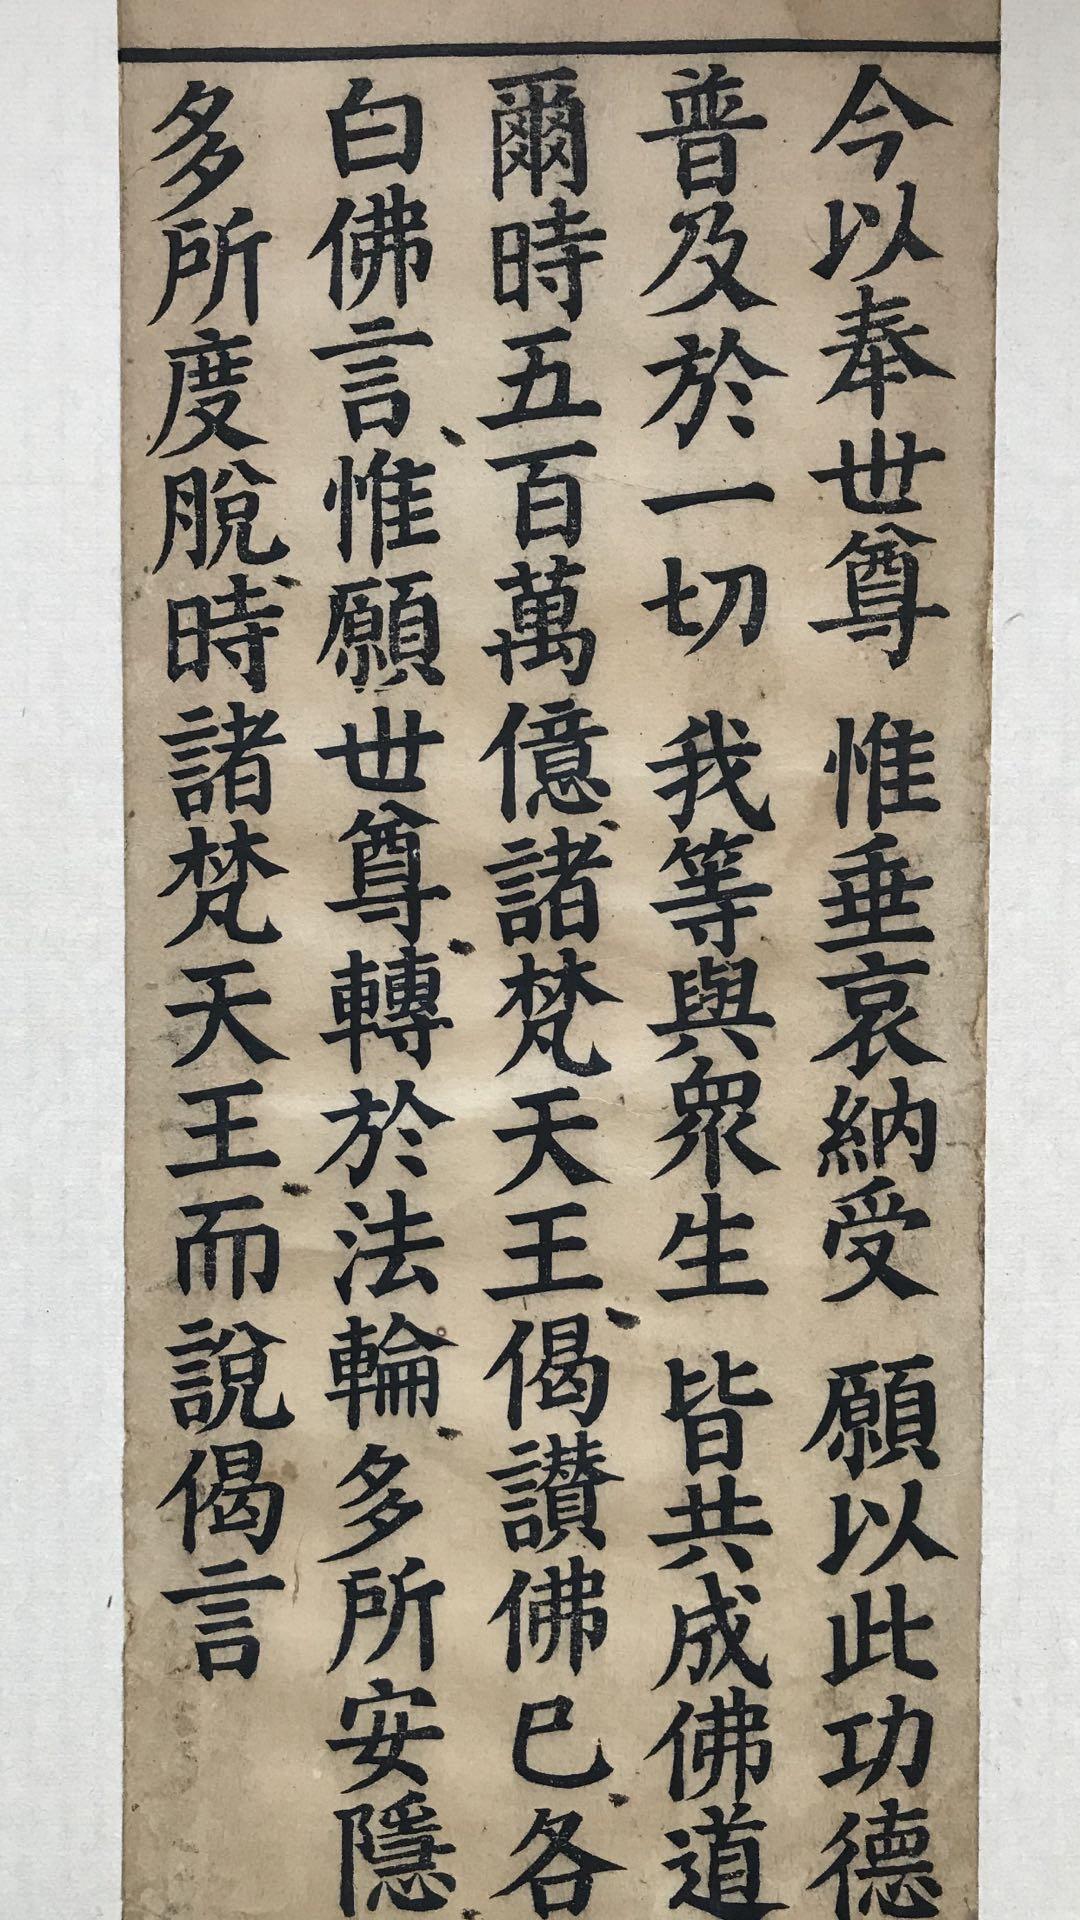 今以奉世尊　惟垂哀納受　願以此功德
普及於一切　我等與衆生　皆共成佛道
爾時五百萬億諸梵天王偈讚佛已各
白佛言惟願世尊轉於法輪多所安隱
多所度脫時諸梵天王而說偈言